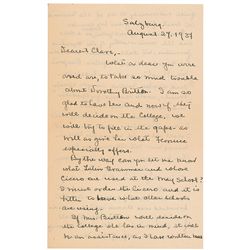 Salzburg.
August 27, 1931
Dearest Clara,
What a dear you were
and are, to take so much trouble
about Dorothy Britton. I am so
glad to have her and now if they
will decide on the College, we
will try to fill in the gaps as
well as give her what Florence
especially offers.
By the way can you let me know
what Latin Grammar and whose
Cicero are used at the May School?
I must order the Cicero and it is
better to have what other schools
are using.
If Mrs Britton will decide on
the College she has in mind, it will
be an assistance, as I have written